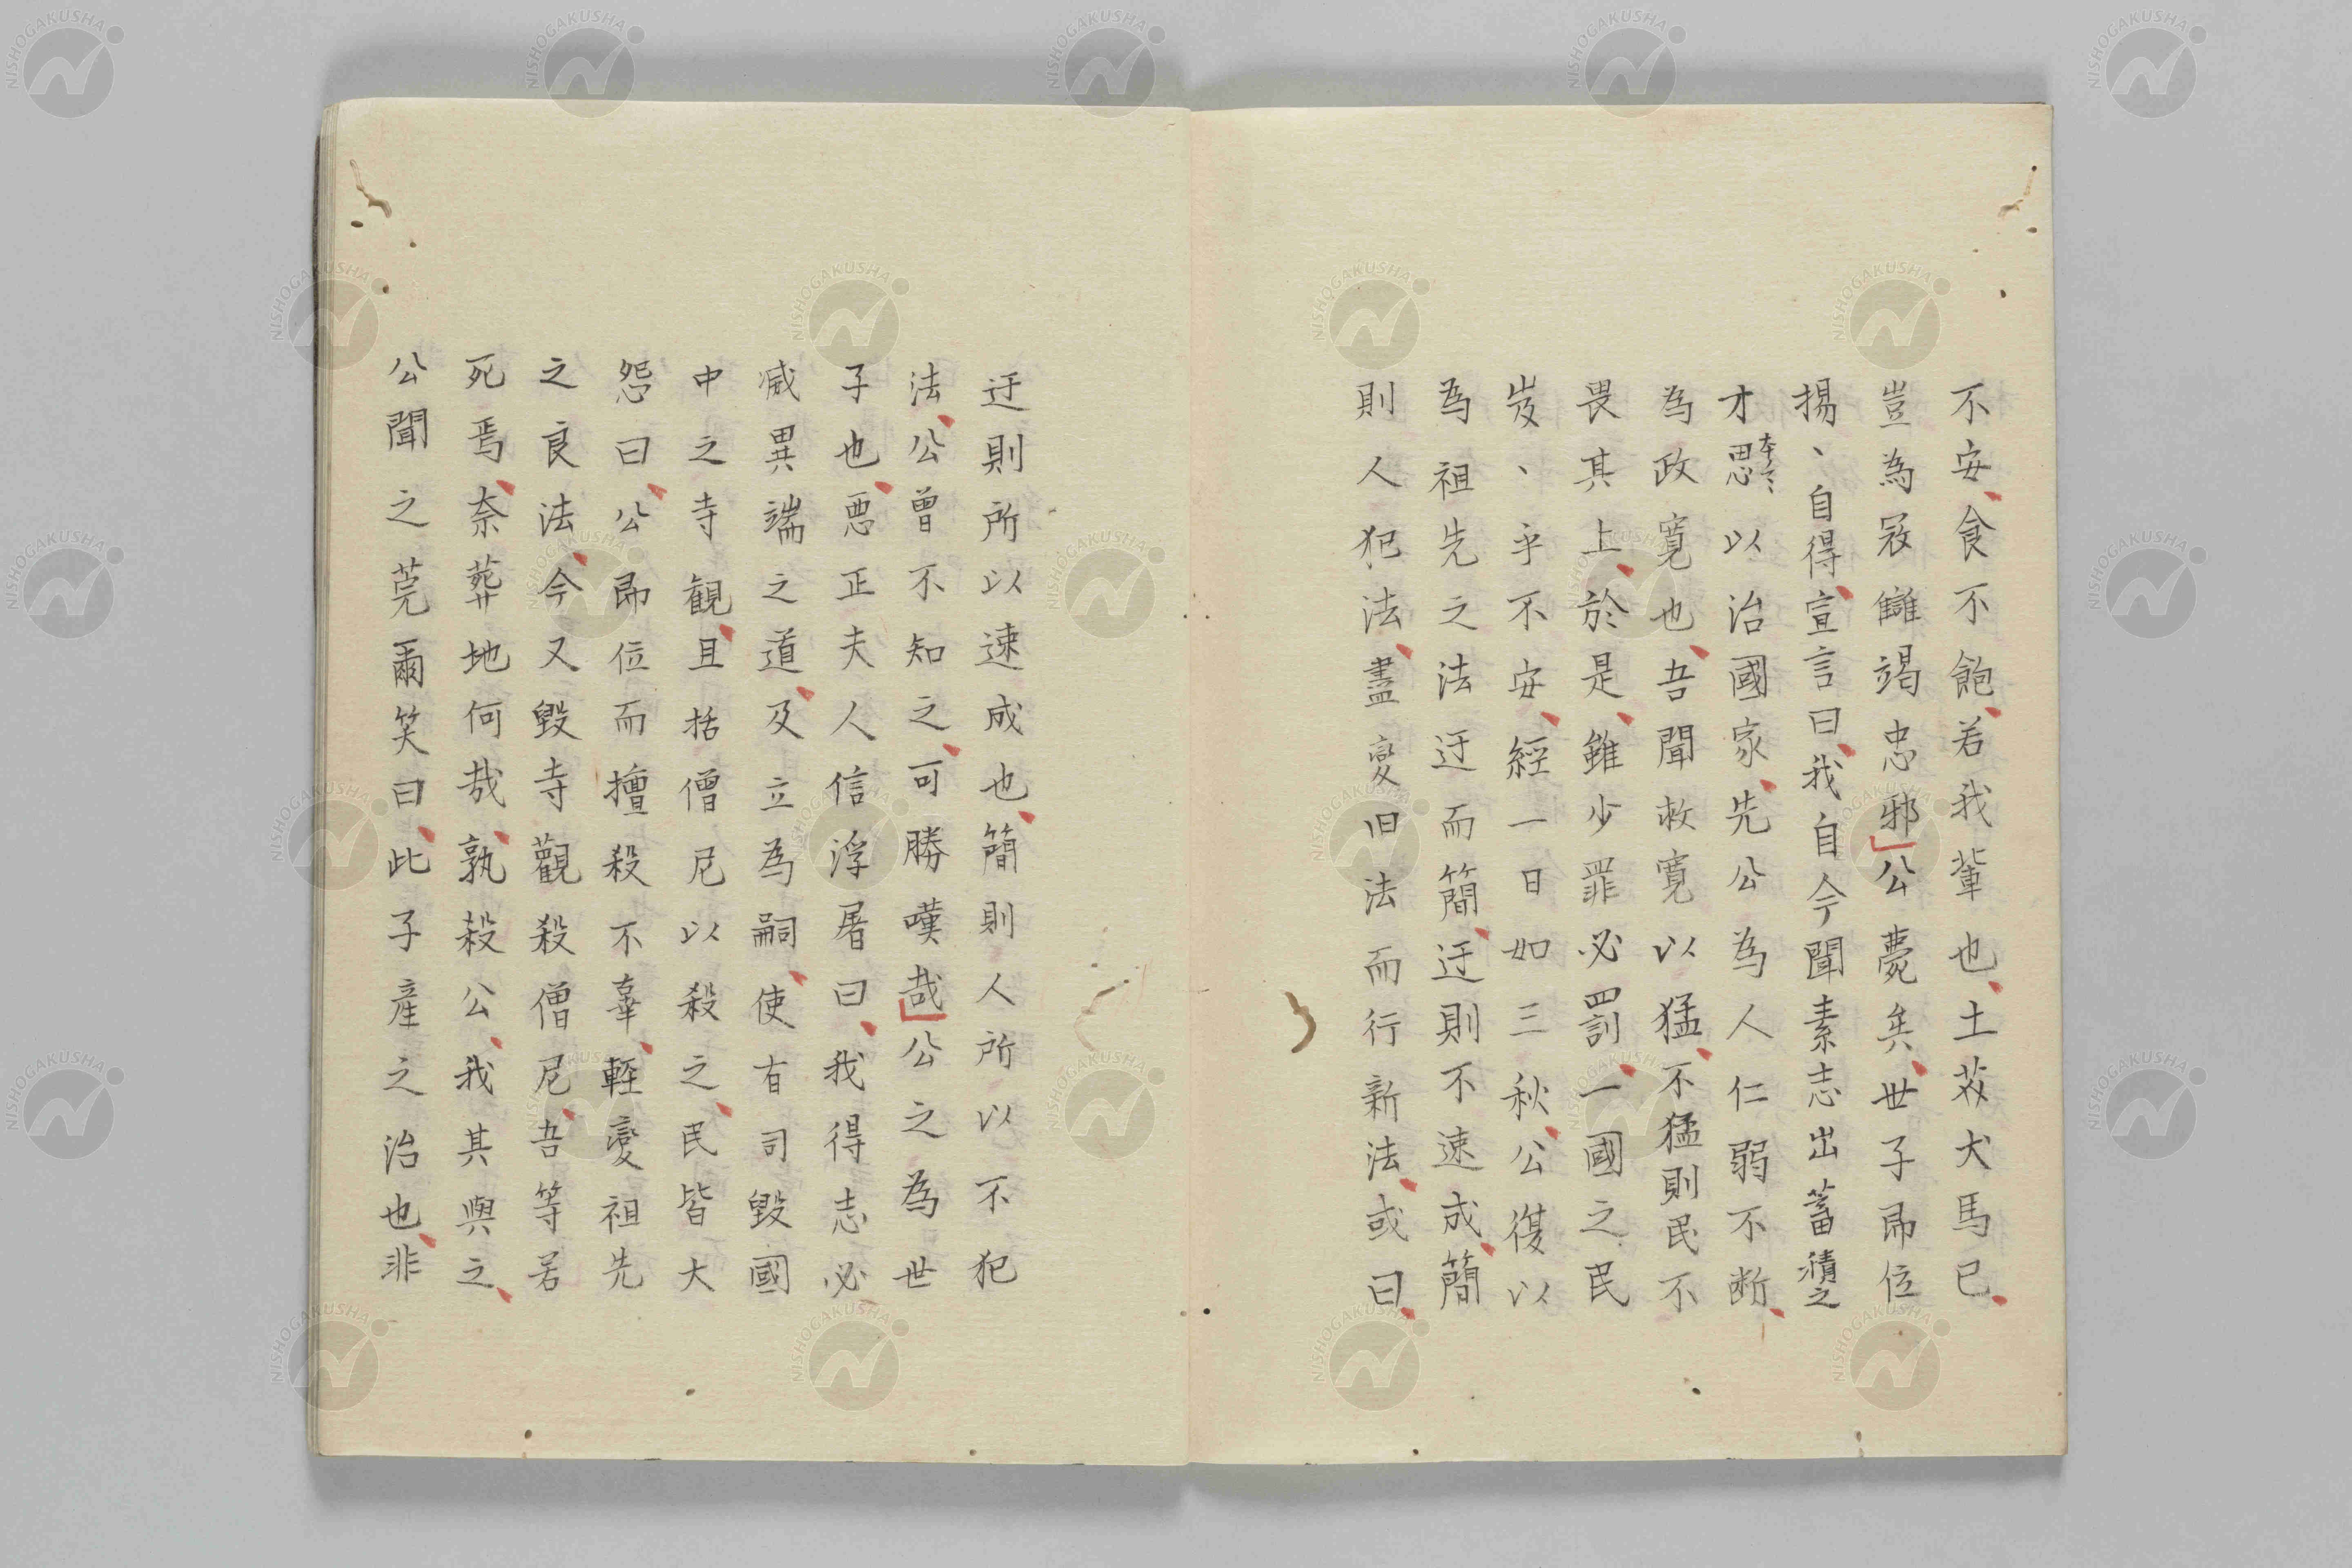 不安食不飽若我輩也土芥犬馬已
豈為冦讎竭忠邪公薨矣世子即位
揚、自得宣言曰我自今聞素志出蓄積之
才思以治國家先公為人仁弱不断
為政寛也吾聞救寛以猛不猛則民不
畏其上於是雖少罪必罰一國之民
岌、乎不安經一日如三秋公復以
為祖先之法迂而簡迂則不速成簡
則人犯法盡変旧法而行新法或曰
迂則所以速成也簡則人所以不犯
法公曽不知之可勝嘆哉公之為世
子也悪正夫人信浮屠曰我得志必
滅異端之道及立為嗣使有司毀國
中之寺観且括僧尼以殺之民皆大
怨曰公即位而擅殺不辜輕変祖先
之良法今又毀寺觀殺僧尼吾等若
死焉奈葬地何哉孰殺公我其與之
公聞之莞爾笑曰此子産之治也非
NISHOGAKUSHA